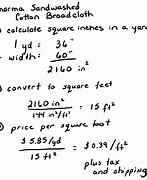 Dharma Sandwashed
Cotton Broadcloth
① calculate square inches in a yard
1 yd = 36"
width: 60"
2160 in²
② convert to square feet
2160 in² / 144 in²/ft² = 15 ft²
③ price per square foot
$5.85/yd / 15 ft² = $0.39/ft²
plus tax
and shipping